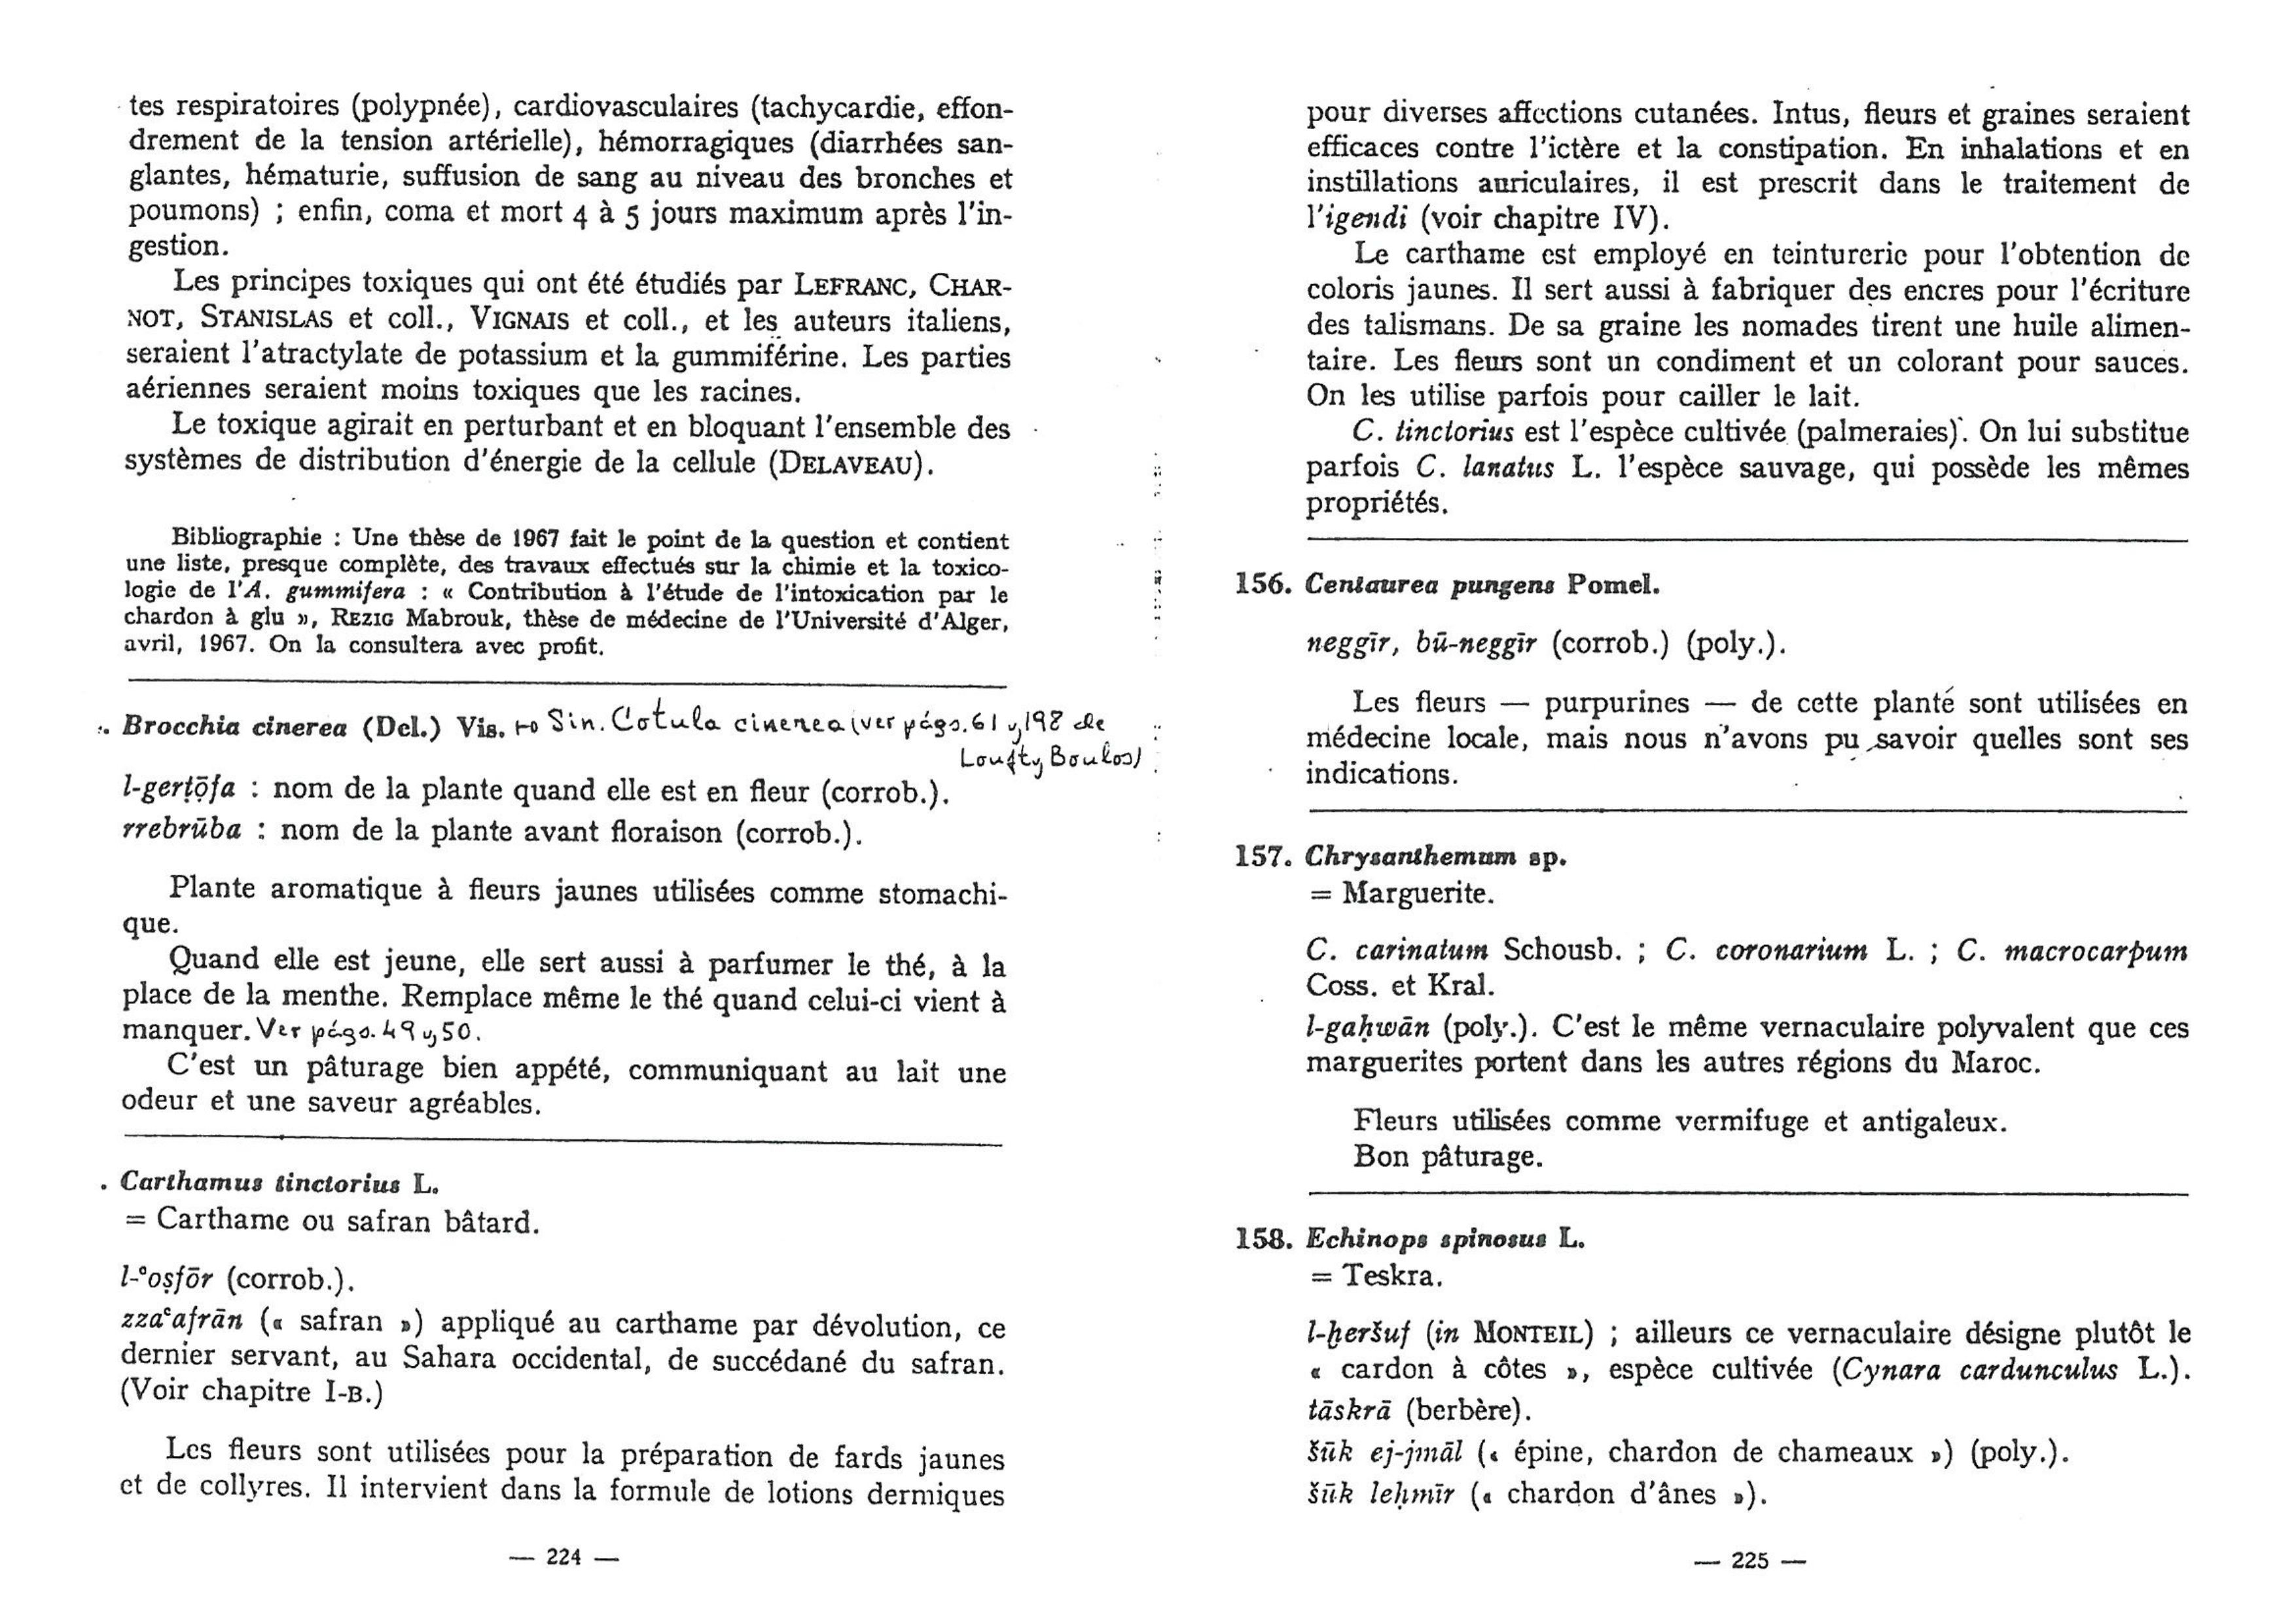 tes respiratoires (polypnée), cardiovasculaires (tachycardie, effon-
drement de la tension artérielle), hémorragiques (diarrhées san-
glantes, hématurie, suffusion de sang au niveau des bronches et
poumons) ; enfin, coma et mort 4 à 5 jours maximum après l'in-
gestion.
Les principes toxiques qui ont été étudiés par LEFRANC, CHAR-
NOT, STANISLAS et coll., VIGNAIS et coll., et les auteurs italiens,
seraient l'atractylate de potassium et la gummiférine. Les parties
aériennes seraient moins toxiques que les racines.
Le toxique agirait en perturbant et en bloquant l'ensemble des
systèmes de distribution d'énergie de la cellule (DELAVEAU).
Bibliographie : Une thèse de 1967 fait le point de la question et contient
une liste, presque complète, des travaux effectués sur la chimie et la toxico-
logie de l'A. gummifera : « Contribution à l'étude de l'intoxication par le
chardon à glu », REZIG Mabrouk, thèse de médecine de l'Université d'Alger,
avril, 1967. On la consultera avec profit.
Brocchia cinerea (Del.) Vis. → Sin. Cotula cinerea (ver págs. 61 y 198 de
Loufty Boulos)
l-gerṭōfa : nom de la plante quand elle est en fleur (corrob.).
rrebrūba : nom de la plante avant floraison (corrob.).
Plante aromatique à fleurs jaunes utilisées comme stomachi-
que.
Quand elle est jeune, elle sert aussi à parfumer le thé, à la
place de la menthe. Remplace même le thé quand celui-ci vient à
manquer. Ver págs. 49 y 50.
C'est un pâturage bien appété, communiquant au lait une
odeur et une saveur agréables.
Carthamus tinctorius L.
= Carthame ou safran bâtard.
l-ᶜoṣfōr (corrob.).
zzaᶜafrān (« safran ») appliqué au carthame par dévolution, ce
dernier servant, au Sahara occidental, de succédané du safran.
(Voir chapitre I-B.)
Les fleurs sont utilisées pour la préparation de fards jaunes
et de collyres. Il intervient dans la formule de lotions dermiques
— 224 —
pour diverses affections cutanées. Intus, fleurs et graines seraient
efficaces contre l'ictère et la constipation. En inhalations et en
instillations auriculaires, il est prescrit dans le traitement de
l'igendi (voir chapitre IV).
Le carthame est employé en teinturerie pour l'obtention de
coloris jaunes. Il sert aussi à fabriquer des encres pour l'écriture
des talismans. De sa graine les nomades tirent une huile alimen-
taire. Les fleurs sont un condiment et un colorant pour sauces.
On les utilise parfois pour cailler le lait.
C. tinctorius est l'espèce cultivée (palmeraies). On lui substitue
parfois C. lanatus L. l'espèce sauvage, qui possède les mêmes
propriétés.
156. Centaurea pungens Pomel.
neggīr, bū-neggīr (corrob.) (poly.).
Les fleurs — purpurines — de cette plante sont utilisées en
médecine locale, mais nous n'avons pu savoir quelles sont ses
indications.
157. Chrysanthemum sp.
= Marguerite.
C. carinatum Schousb. ; C. coronarium L. ; C. macrocarpum
Coss. et Kral.
l-gaḥwān (poly.). C'est le même vernaculaire polyvalent que ces
marguerites portent dans les autres régions du Maroc.
Fleurs utilisées comme vermifuge et antigaleux.
Bon pâturage.
158. Echinops spinosus L.
= Teskra.
l-ḫeršuf (in MONTEIL) ; ailleurs ce vernaculaire désigne plutôt le
« cardon à côtes », espèce cultivée (Cynara cardunculus L.).
tāskrā (berbère).
šūk ej-jmāl (« épine, chardon de chameaux ») (poly.).
šūk leḥmīr (« chardon d'ânes »).
— 225 —